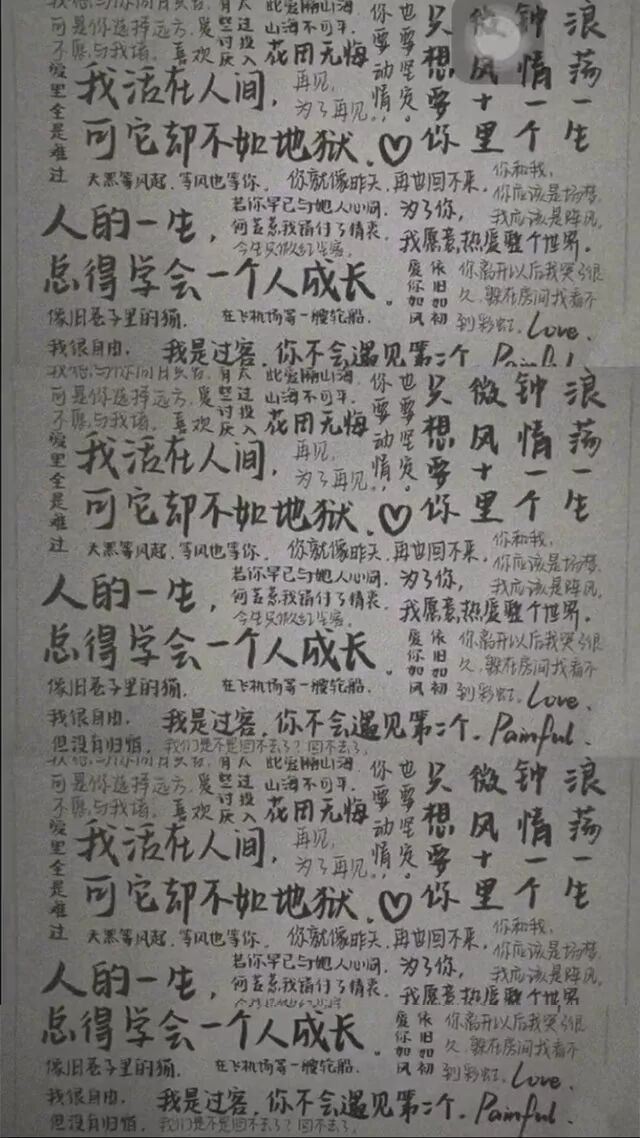 可是你选择远方，
不愿与我嗨。喜欢
有人
些过
讨投
厌入
此爱隔山海
山海不可平
花田无悔
爱里全是难过
我活在人间，
可它却不如地狱。♡
再见，
为了再见。
你要动情，
也要坚定。
只想要你
微风十里
钟情一个
浪荡一生
大概等风起，等风也等你。
你就像昨天，再也回不来。
你和我，
你应该是场梦，
我应该是阵风。
人的一生，
总得学会一个人成长。
若你早已与她人心同，
何苦惹我错付了情衷，
为了你，
我愿意热爱整个世界。
爱你如风
依旧如初
你离开以后我哭了很
久，躲在房间找看不
到彩虹。Love.
像旧巷子里的猫，
在飞机场等一艘轮船。
我很自由，
我是过客，你不会遇见第二个。Painful
可是你选择远方，
不愿与我嗨。喜欢
有人
些过
讨投
厌入
此爱隔山海
山海不可平
花田无悔
爱里全是难过
我活在人间，
可它却不如地狱。♡
再见，
为了再见。
你要动情，
也要坚定。
只想要你
微风十里
钟情一个
浪荡一生
大概等风起，等风也等你。
你就像昨天，再也回不来。
你和我，
你应该是场梦，
我应该是阵风。
人的一生，
总得学会一个人成长。
若你早已与她人心同，
何苦惹我错付了情衷，
为了你，
我愿意热爱整个世界。
爱你如风
依旧如初
你离开以后我哭了很
久，躲在房间找看不
到彩虹。Love.
像旧巷子里的猫，
在飞机场等一艘轮船。
我很自由，
但没有归宿。
我是过客，你不会遇见第二个。Painful.
我们是不是回不去了？回不去了。
可是你选择远方，
不愿与我嗨。喜欢
有人
些过
讨投
厌入
此爱隔山海
山海不可平
花田无悔
爱里全是难过
我活在人间，
可它却不如地狱。♡
再见，
为了再见。
你要动情，
也要坚定。
只想要你
微风十里
钟情一个
浪荡一生
大概等风起，等风也等你。
你就像昨天，再也回不来。
你和我，
你应该是场梦，
我应该是阵风。
人的一生，
总得学会一个人成长。
若你早已与她人心同，
何苦惹我错付了情衷，
为了你，
我愿意热爱整个世界
爱你如风
依旧如初
你离开以后我哭了很
久，躲在房间找看不
到彩虹。Love.
像旧巷子里的猫，
在飞机场等一艘轮船。
我很自由，
但没有归宿。
我是过客，你不会遇见第二个。Painful.
我们是不是回不去了？回不去了。